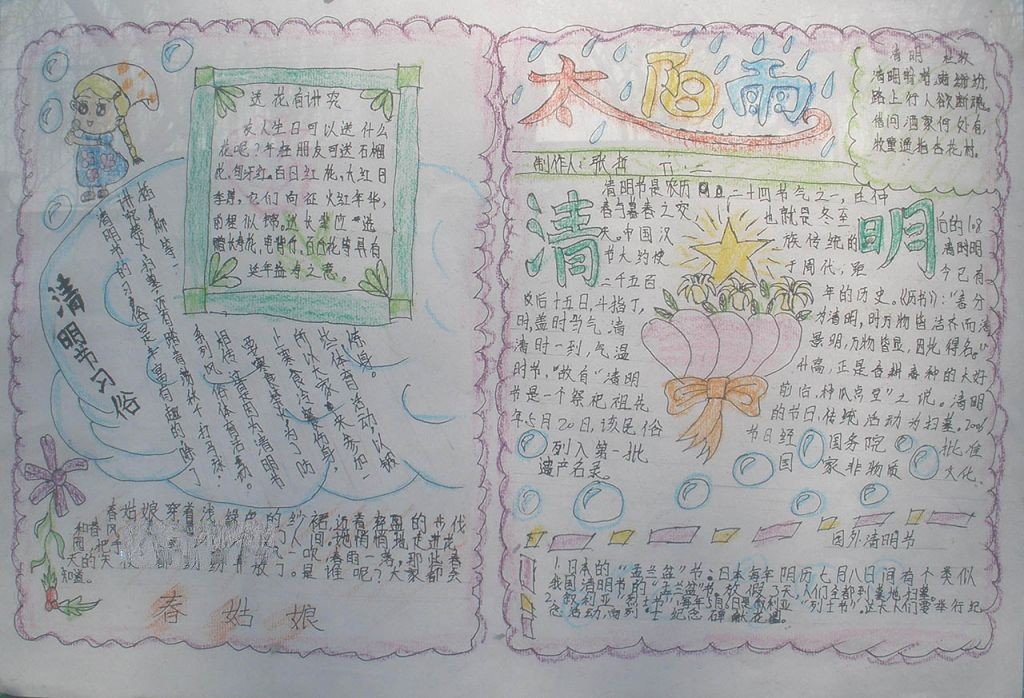 送花有讲究
友人生日可以送什么
花呢？年轻朋友可送石榴
花、象牙红、百日红花、大红月
季等，它们向征火红年华，
前程似锦。送长辈应送
长寿花，百合花等具有
延年益寿之意。
清明节习俗
清明节的习俗是丰富有趣的，除了
讲究禁火、扫墓，还有踏青、荡秋千、打马球、
插柳等一
系列风俗体育活动。
相传这是因为清明节
要寒食禁火，为了防
止寒食冷餐伤身，
所以大家来参加
一些体育活动，以锻
炼身。
春姑娘穿着浅绿色的纱裙，迈着轻盈的步伐
和着春风
一吹，春雨一落，那些春
天的天
开放了。是谁呢？大家都
知道。
春姑娘
太阳雨
制作人：张哲 五.二
清明 杜牧
清明时节雨纷纷，
路上行人欲断魂。
借问酒家何处有，
牧童遥指杏花村。
清明
清明节是农历 二十四节气之一，在仲
春与暮春之交 也就是冬至 后的108
天。中国汉 族传统的 清明
节大约使 于周代，距 今已有
二千五百 年的历史。《历书》：“春分
后十五日，斗指丁， 为清明，时万物皆洁齐而清
时，盖时当气清 景明，万物皆显，因此得名。”
清时一到，气温 升高，正是春耕春种的大好
时节，故有“清明 前后，种瓜点豆”之说。清明
节是一个祭祀祖先 的节日，传统活动为扫墓。2006
年5月20日，该民俗 节日经 国务院 批准
列入第一批 国 家非物质 文化
遗产名录。
国外清明节
1.日本的“盂兰盆”节：日本每年阴历七月八日间有个类似
我国清明节的“盂兰盆”节。放假了天，人们全都到墓地扫墓。
2.叙利亚“烈士节”：每年5月6日是叙利亚“烈士节”，这天人们要举行纪
念活动，向烈士纪念碑献花圈。